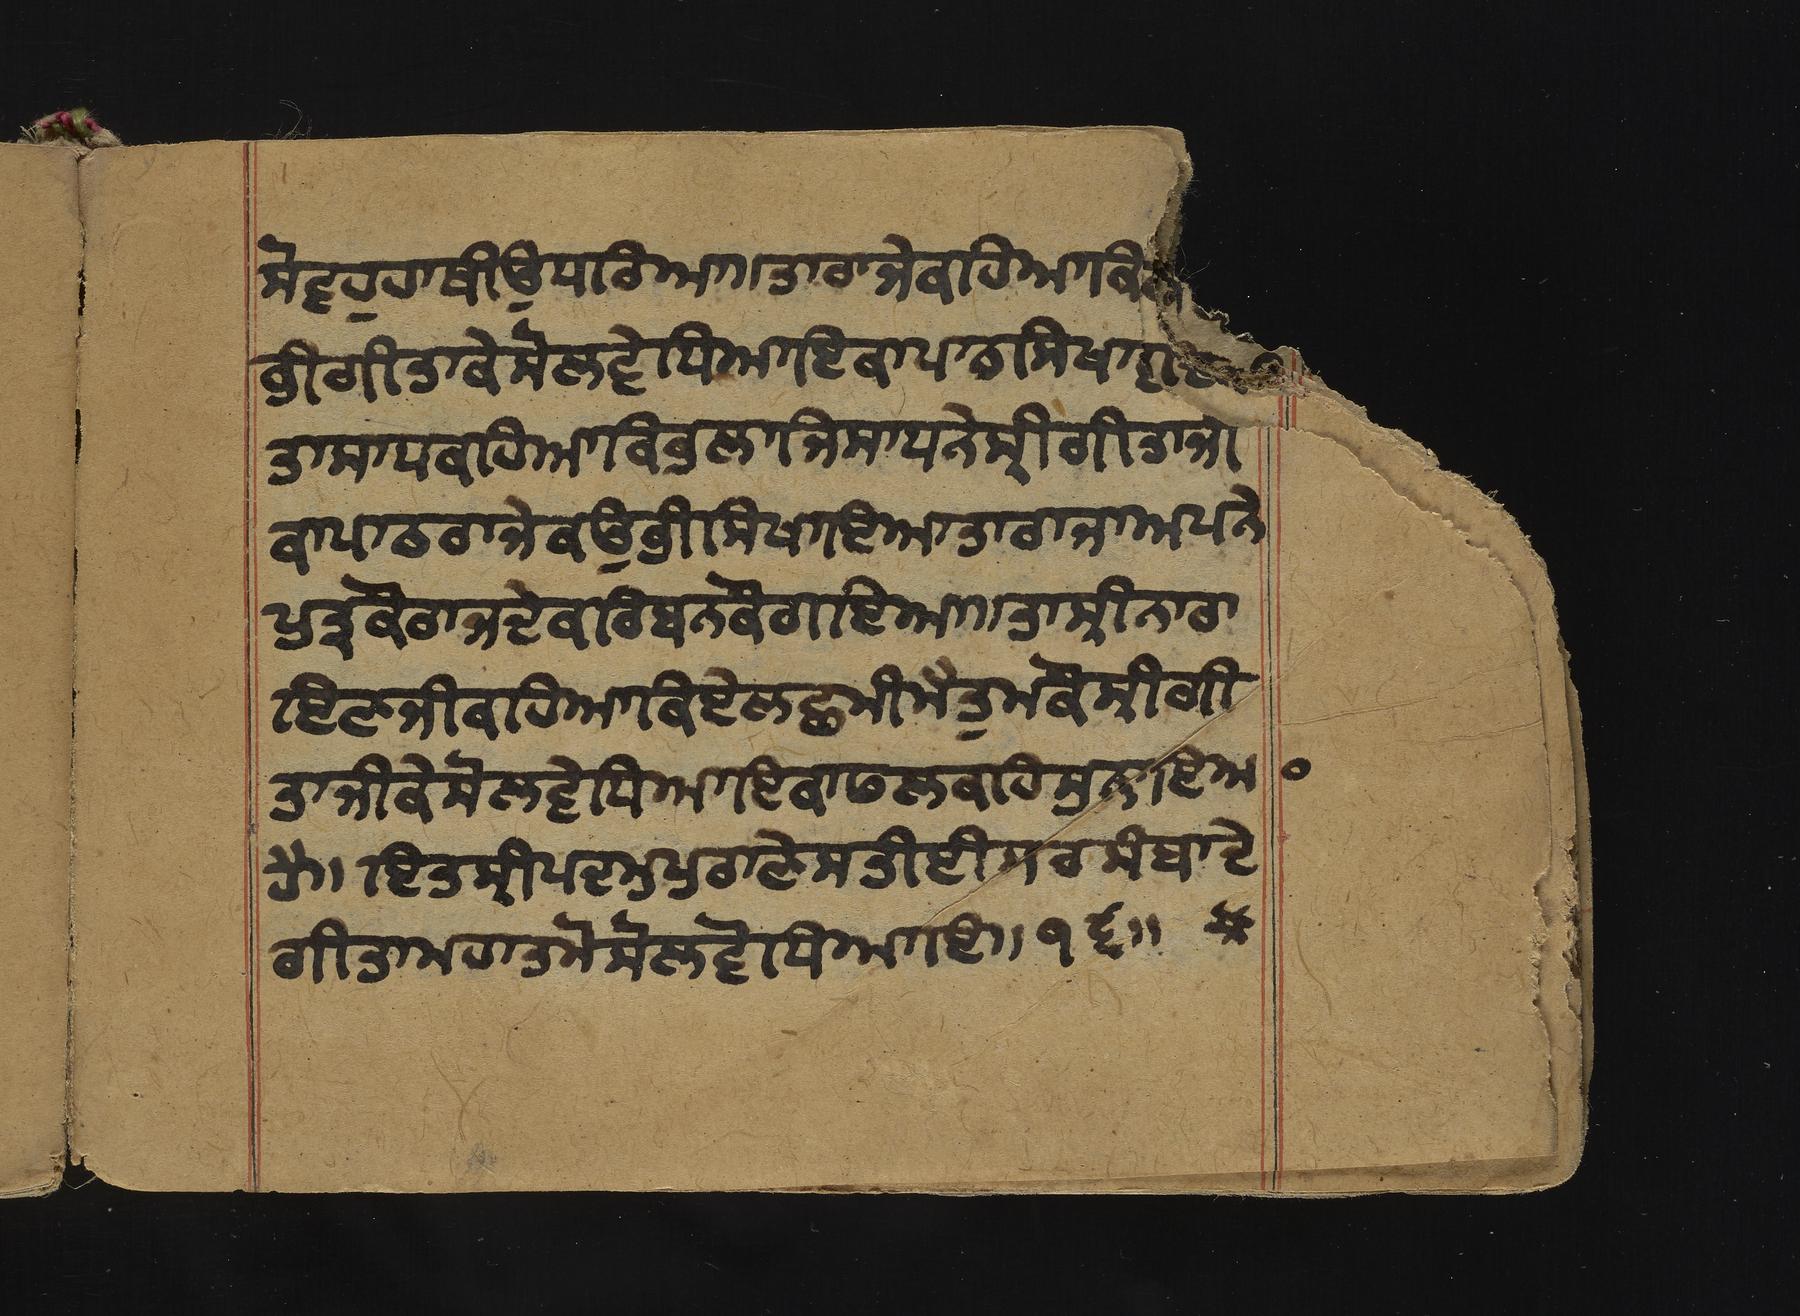 ਸੋਵੂਹੁਹਾਥੀਉੁਧਰਿਆ॥ਤਾਰਾਜੇਕਹਿਆਕਿ
ਭੀਗੀਤਾਕੇਸੋਲਵੇਧਿਆਇਕਾਪਾਠਸਿਖਾਵੋ
ਤਾਸਾਧਕਹਿਆਕਿਭੁਲਾਜਿਸਾਧਨੇਸ੍ਰੀਗੀਤਾਜੀ
ਕਾਪਾਠਰਾਜੇਕਉੁਭੀਸਿਖਾਇਆਤਾਰਾਜਾਅਪਨੇ
ਪੁਤ੍ਰਕੋਰਾਜਦੇਕਰਿਬਨਕੋਗਇਆ॥ਤਾਸ੍ਰੀਨਾਰਾ
ਇਣਜੀਕਹਿਆਕਿਏਲਛਮੀਮੈਤੁਮਕੋਸ੍ਰੀਗੀ
ਤਾਜੀਕੇਸੋਲਵੇਧਿਆਇਕਾਫਲਕਹਿਸੁਨਾਇਆ
ਹੈ॥ਇਤਸ੍ਰੀਪਦਮੁਪੁਰਾਣੇਸਤੀਈਸਰਸੰਬਾਦੇ
ਗੀਤਾਮਹਾਤਮੈਸੋਲਵੋਧਿਆਇ॥੧੬॥